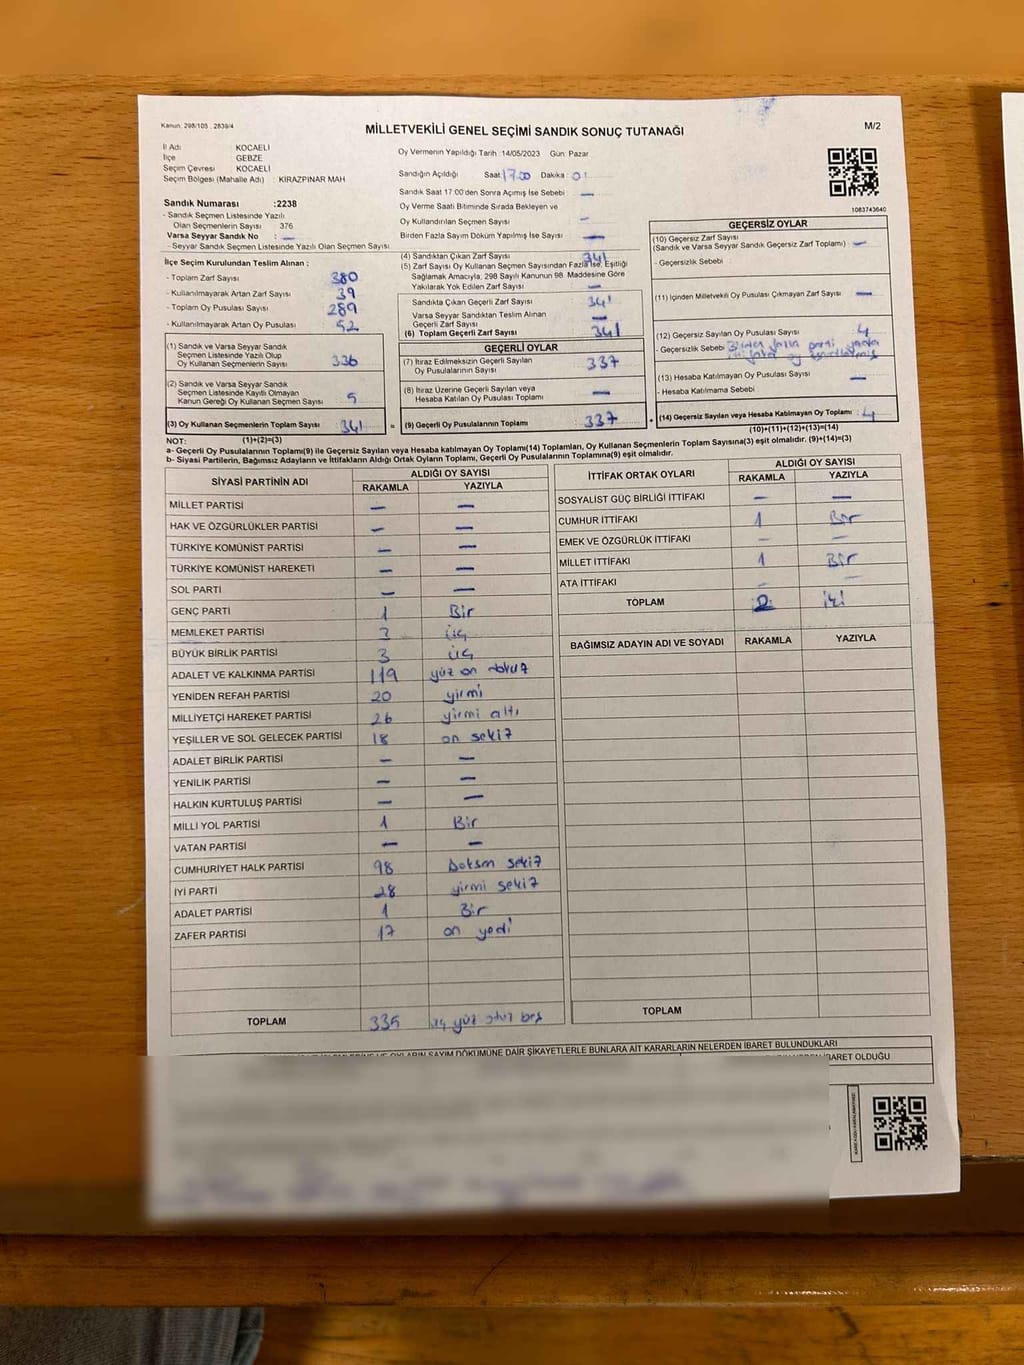 Kanun: 298/105 , 2839/4
MİLLETVEKİLİ GENEL SEÇİMİ SANDIK SONUÇ TUTANAĞI
M/2
İl Adı KOCAELİ
İlçe GEBZE
Seçim Çevresi KOCAELİ
Seçim Bölgesi (Mahalle Adı) : KİRAZPINAR MAH
Sandık Numarası :2238
- Sandık Seçmen Listesinde Yazılı
Olan Seçmenlerin Sayısı 376
Varsa Seyyar Sandık No : —
- Seyyar Sandık Seçmen Listesinde Yazılı Olan Seçmen Sayısı
İlçe Seçim Kurulundan Teslim Alınan :
- Toplam Zarf Sayısı 380
- Kullanılmayarak Artan Zarf Sayısı 39
- Toplam Oy Pusulası Sayısı 289
- Kullanılmayarak Artan Oy Pusulası 52
(1) Sandık ve Varsa Seyyar Sandık
Seçmen Listesinde Yazılı Olup
Oy Kullanan Seçmenlerin Sayısı 336
(2) Sandık ve Varsa Seyyar Sandık
Seçmen Listesinde Kayıtlı Olmayan
Kanun Gereği Oy Kullanan Seçmen Sayısı 5
(3) Oy Kullanan Seçmenlerin Toplam Sayısı 341
Oy Vermenin Yapıldığı Tarih :14/05/2023 Gün: Pazar
Sandığın Açıldığı Saat: 17.00 Dakika: 01
Sandık Saat 17:00'den Sonra Açımış İse Sebebi : —
Oy Verme Saati Bitiminde Sırada Bekleyen ve
Oy Kullandırılan Seçmen Sayısı —
Birden Fazla Sayım Döküm Yapılmış İse Sayısı —
(4) Sandıktan Çıkan Zarf Sayısı 341
(5) Zarf Sayısı Oy Kullanan Seçmen Sayısından Fazla İse, Eşitliği
Sağlamak Amacıyla, 298 Sayılı Kanunun 98. Maddesine Göre
Yakılarak Yok Edilen Zarf Sayısı —
Sandıkta Çıkan Geçerli Zarf Sayısı 341
Varsa Seyyar Sandıktan Teslim Alınan
Geçerli Zarf Sayısı —
(6) Toplam Geçerli Zarf Sayısı 341
GEÇERLİ OYLAR
(7) İtiraz Edilmeksizin Geçerli Sayılan
Oy Pusulalarının Sayısı 337
(8) İtiraz Üzerine Geçerli Sayılan veya
Hesaba Katılan Oy Pusulası Toplamı —
= (9) Geçerli Oy Pusulalarının Toplamı 337
1083743640
GEÇERSİZ OYLAR
(10) Geçersiz Zarf Sayısı
(Sandık ve Varsa Seyyar Sandık Geçersiz Zarf Toplamı) —
- Geçersizlik Sebebi :
(11) İçinden Milletvekili Oy Pusulası Çıkmayan Zarf Sayısı —
(12) Geçersiz Sayılan Oy Pusulası Sayısı 4
- Geçersizlik Sebebi Birden fazla parti yada
ittifaka oy
(13) Hesaba Katılmayan Oy Pusulası Sayısı —
- Hesaba Katılmama Sebebi
+ (14) Geçersiz Sayılan veya Hesaba Katılmayan Oy Toplamı : 4
NOT: (1)+(2)=(3) (10)+(11)+(12)+(13)=(14)
a- Geçerli Oy Pusulalarının Toplamı(9) ile Geçersiz Sayılan veya Hesaba katılmayan Oy Toplamı(14) Toplamları, Oy Kullanan Seçmenlerin Toplam Sayısına(3) eşit olmalıdır. (9)+(14)=(3)
b- Siyasi Partilerin, Bağımsız Adayların ve İttifakların Aldığı Ortak Oyların Toplamı, Geçerli Oy Pusulalarının Toplamına(9) eşit olmalıdır.
SİYASİ PARTİNİN ADI ALDIĞI OY SAYISI
RAKAMLA YAZIYLA
MİLLET PARTİSİ — —
HAK VE ÖZGÜRLÜKLER PARTİSİ — —
TÜRKİYE KOMÜNİST PARTİSİ — —
TÜRKİYE KOMÜNİST HAREKETİ — —
SOL PARTİ — —
GENÇ PARTİ 1 Bir
MEMLEKET PARTİSİ 3 üç
BÜYÜK BİRLİK PARTİSİ 3 üç
ADALET VE KALKINMA PARTİSİ 119 yüz on dokuz
YENİDEN REFAH PARTİSİ 20 yirmi
MİLLİYETÇİ HAREKET PARTİSİ 26 yirmi altı
YEŞİLLER VE SOL GELECEK PARTİSİ 18 on sekiz
ADALET BİRLİK PARTİSİ — —
YENİLİK PARTİSİ — —
HALKIN KURTULUŞ PARTİSİ — —
MİLLİ YOL PARTİSİ 1 Bir
VATAN PARTİSİ — —
CUMHURİYET HALK PARTİSİ 98 Doksan sekiz
İYİ PARTİ 28 yirmi sekiz
ADALET PARTİSİ 1 Bir
ZAFER PARTİSİ 17 on yedi
TOPLAM 335 üç yüz otuz beş
İTTİFAK ORTAK OYLARI ALDIĞI OY SAYISI
RAKAMLA YAZIYLA
SOSYALİST GÜÇ BİRLİĞİ İTTİFAKI — —
CUMHUR İTTİFAKI 1 Bir
EMEK VE ÖZGÜRLÜK İTTİFAKI — —
MİLLET İTTİFAKI 1 Bir
ATA İTTİFAKI — —
TOPLAM 2 iki
BAĞIMSIZ ADAYIN ADI VE SOYADI RAKAMLA YAZIYLA
TOPLAM
OYLARIN SAYIM DÖKÜMÜNE DAİR ŞİKAYETLERLE BUNLARA AİT KARARLARIN NELERDEN İBARET BULUNDUKLARI
İBARET OLDUĞU